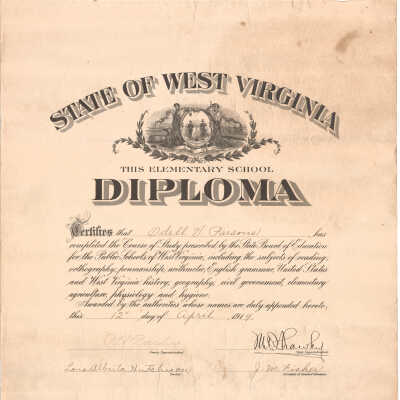 STATE OF WEST VIRGINIA
THIS ELEMENTARY SCHOOL
DIPLOMA
Certifies that Odell V Parsons has
completed the Course of Study prescribed by the State Board of Education
for the Public Schools of West Virginia, including the subjects of reading,
orthography, penmanship, arithmetic, English grammar, United States
and West Virginia history, geography, civil government, elementary
agriculture, physiology and hygiene.
Awarded by the authorities whose names are duly appended hereto,
this 12 day of April 1919.
M.P. Shawkey
County Superintendent
State Superintendent
Lora Alberta Hutchinson
J. M. Fisher
Teacher